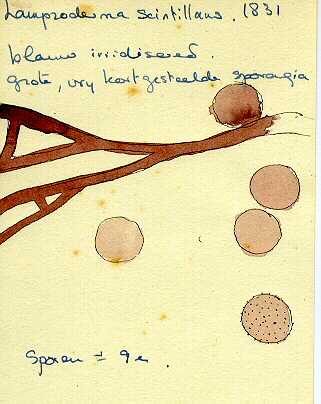 Lamproderma scintillans. 1831
blauw irridiserend.
grote, vry kortgesteelde sporangia
Sporen ± 9 µ.